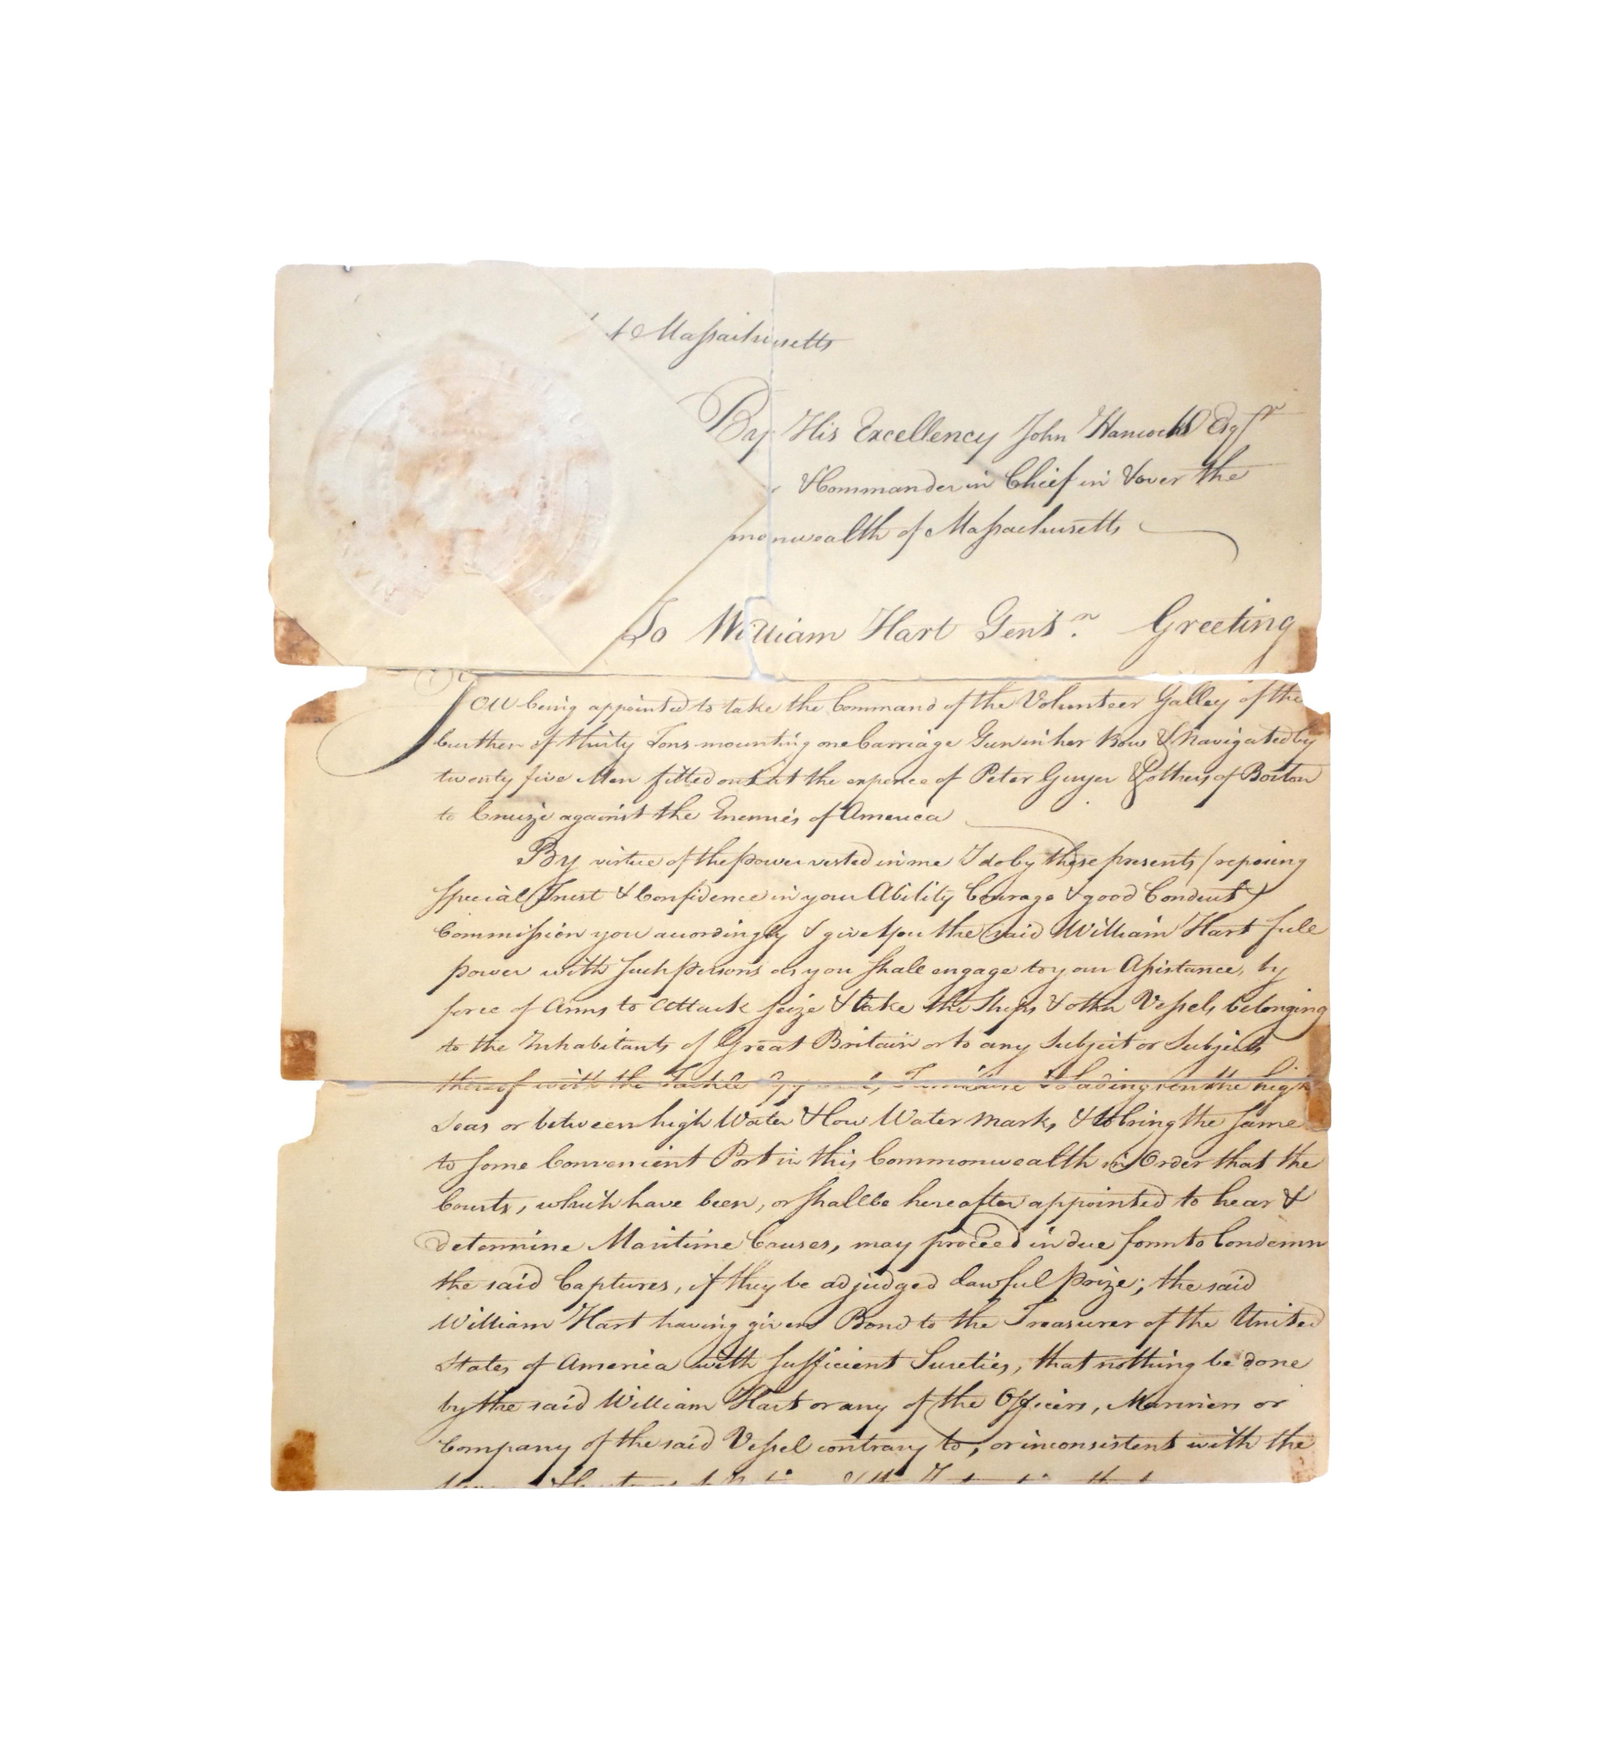 of Massachusetts
By His Excellency John Hancock Esqr
& Commander in Chief in & over the
monwealth of Massachusetts
To William Hart Gentn. Greeting
You being appointed to take the Command of the Volunteer Galley of the
burthen of thirty Tons mounting one Carriage Gun in her Bow & Navigated by
twenty five Men fitted out at the expence of Peter Guyer & others of Boston
to Cruize against the Enemies of America
By virtue of the power vested in me I do by these presents (reposing
special Trust & Confidence in your Ability Courage & good Conduct)
Commission you accordingly & give you the said William Hart full
power with such persons as you shall engage to your Assistance, by
force of Arms to Attack seize & take the Ships & other Vessels belonging
to the Inhabitants of Great Britain or to any Subject or Subjects
thereof with the Tackle Furniture & lading on the high
Seas or between high Water & low Water Mark, & to bring the same
to some Convenient Port in this Commonwealth in Order that the
Courts, which have been, or shall be hereafter appointed to hear &
determine Maritime Causes, may proceed in due form to Condemn
the said Captures, if they be adjudged lawful prize; the said
William Hart having given Bond to the Treasurer of the United
States of America with sufficient Sureties, that nothing be done
by the said William Hart or any of the Officers, Mariners or
Company of the said Vessel contrary to, or inconsistent with the